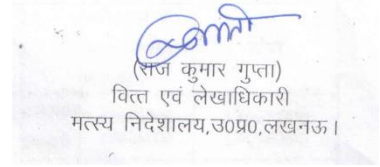 (राज कुमार गुप्ता)
वित्त एवं लेखाधिकारी
मत्स्य निदेशालय,उ0प्र0,लखनऊ।